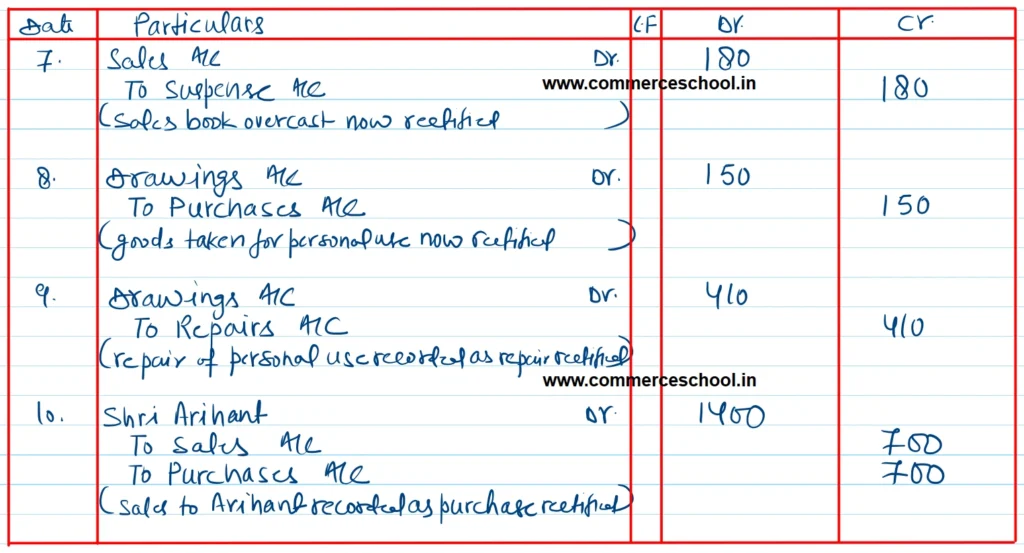 Date Particulars L.F Dr. Cr.
7. Sales A/C Dr. 180
To Suspense A/C 180
www.commerceschool.in
(Sales book overcast now rectified)
8. Drawings A/C Dr. 150
To Purchases A/C 150
(goods taken for personal use now rectified)
9. Drawings A/C Dr. 410
To Repairs A/C 410
(repair of personal use recorded as repair rectified)
www.commerceschool.in
10. Shri Arihant Dr. 1400
To Sales A/C 700
To Purchases A/C 700
(Sales to Arihant recorded as purchase rectified)